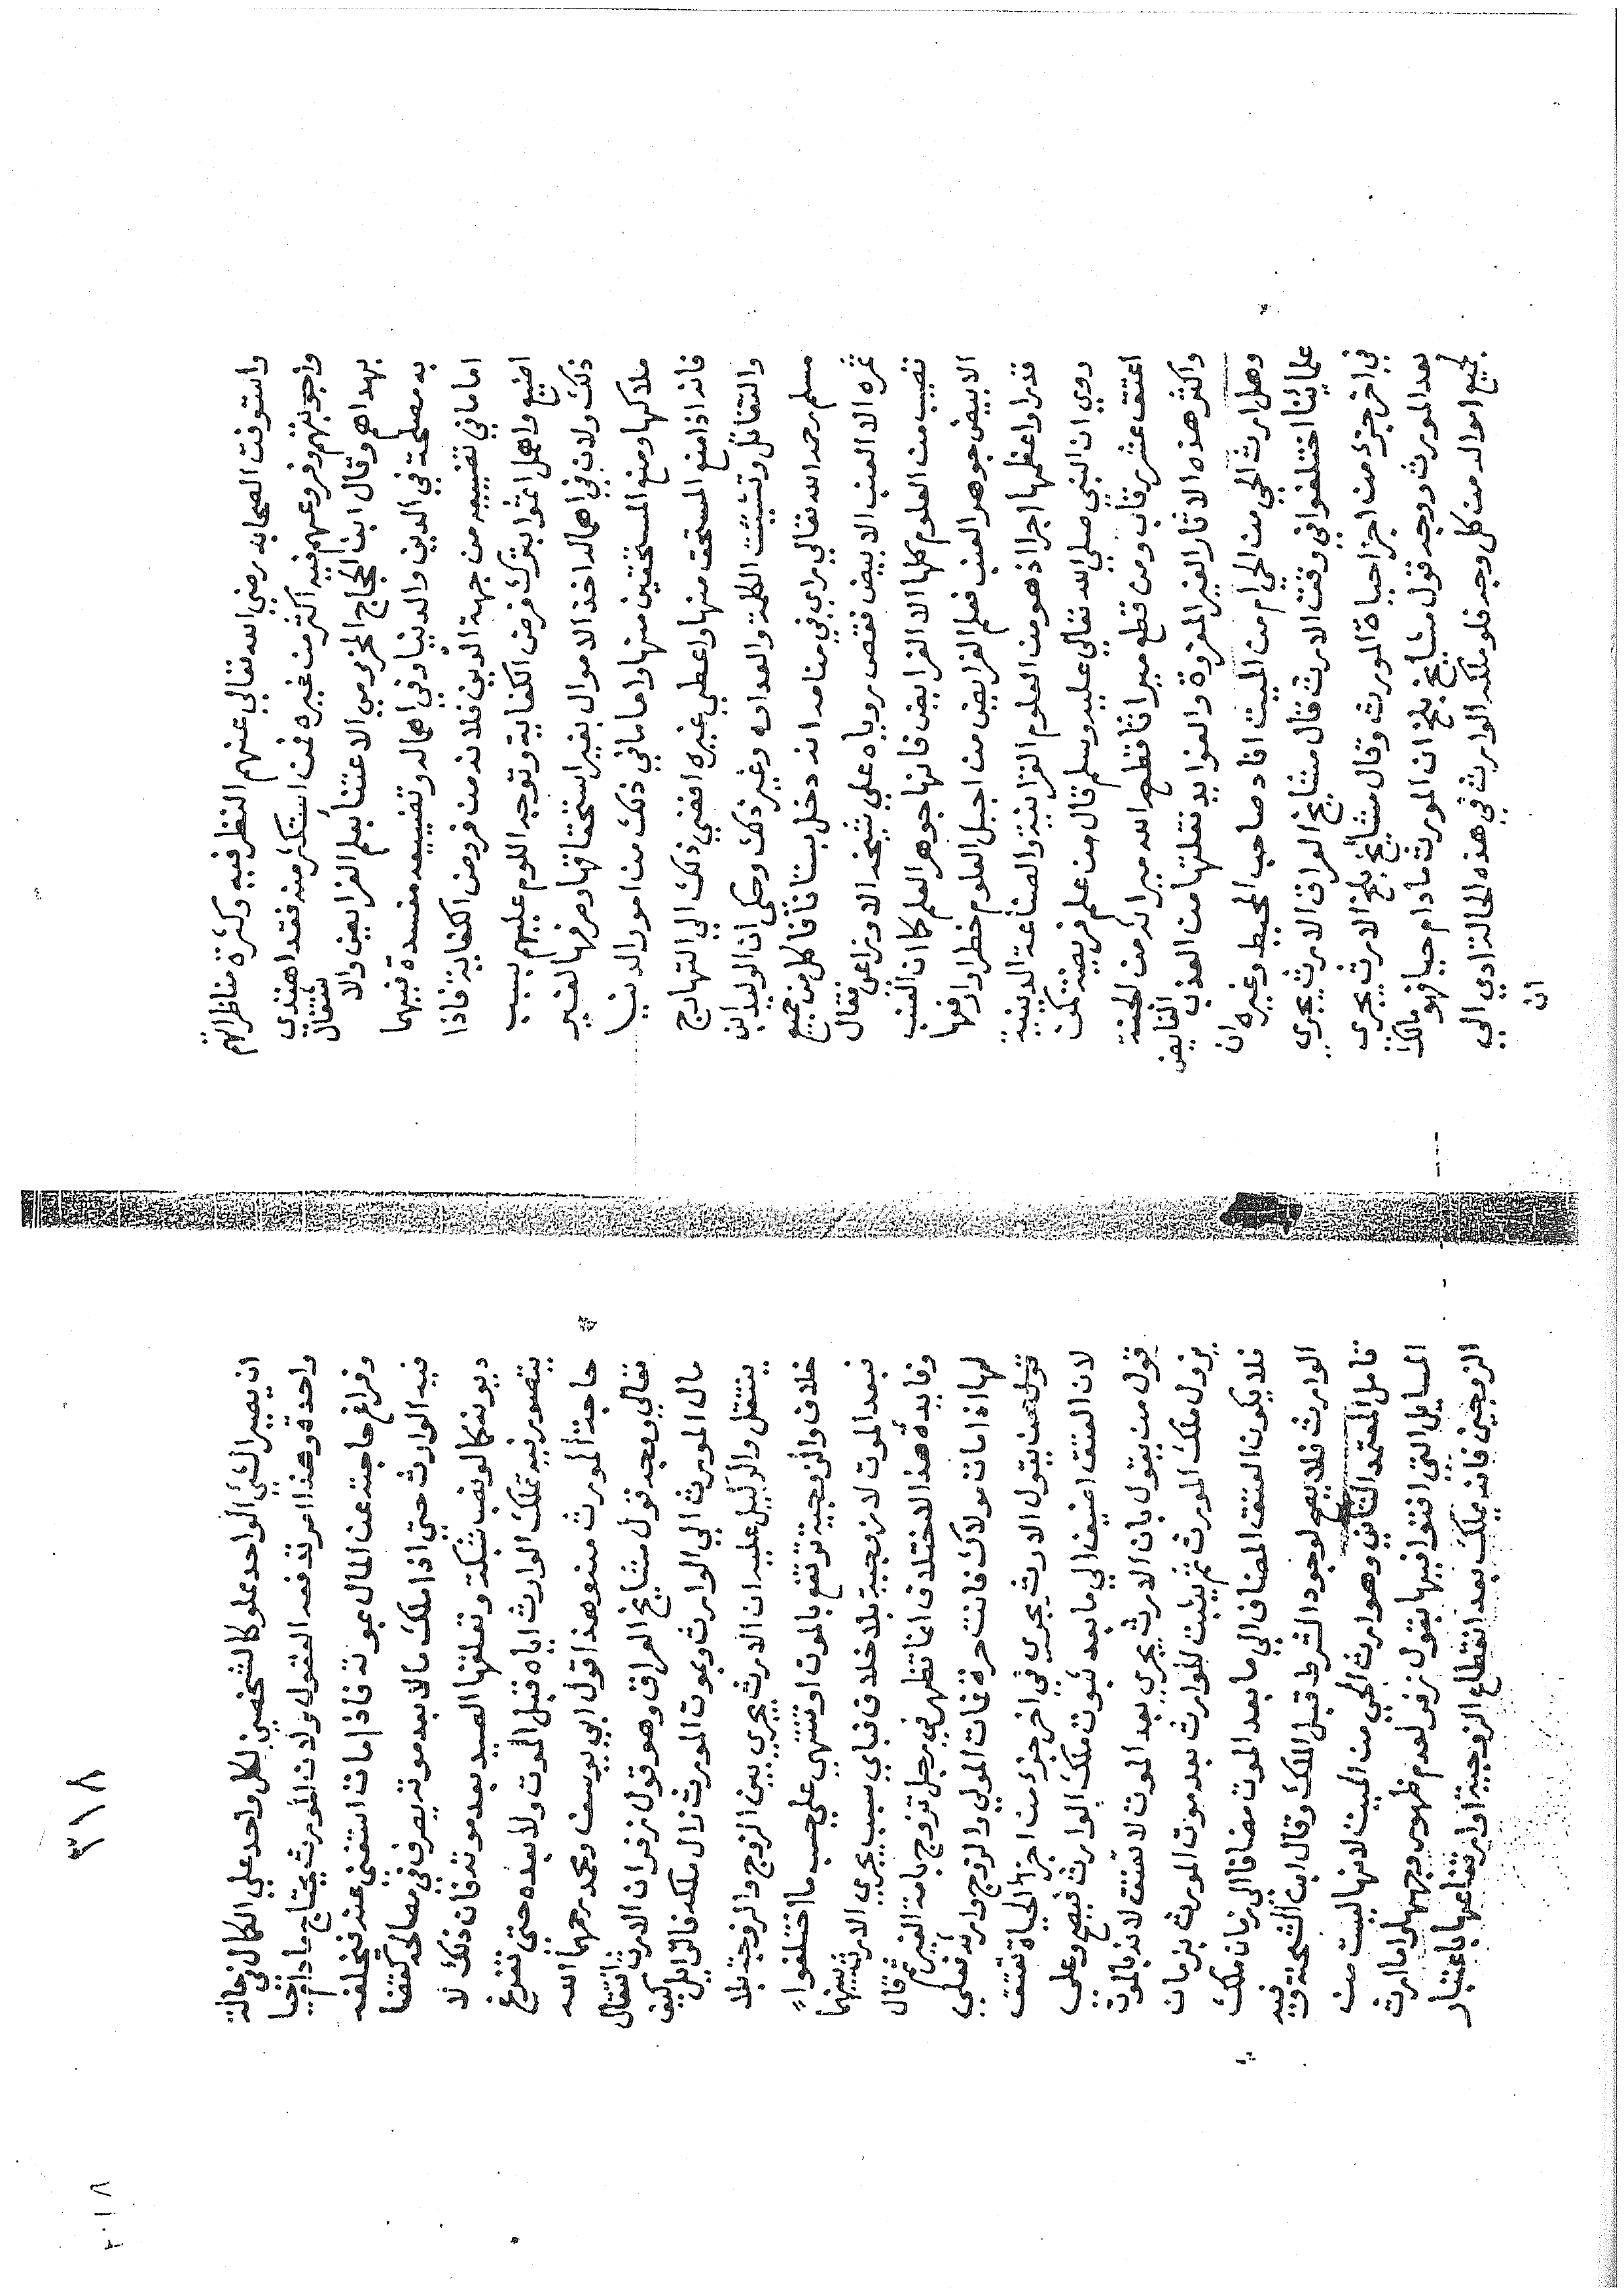 واستوفت الصحابه رضي الله تعالي عنهم النظر فيه وكثرة مناظراتهم
واجوبتهم وفروعهم فيه اكثر من غيره فمن استكثر منه فقد اهتدي
بهداهم وقال ابن الحجاج المخزومي الاعتنا بعلم الفرايض والاشتغال
به مصلحة في الدين والدنيا وفي اهماله وتضييعه مفسدة فيهما
اما ما في تضييعه من جهة الدين فلانه من فروض الكفاية فاذا
اضيع واهمل اثموا بترك فرض الكفاية وتوجه اللوم عليهم بسبب
ذلك ولان في اهماله اخذ الاموال بغير استحقاقها وصرفها لغير
ملاكها ومنع المستحقين منها واما ما في ذلك من امور الدنيا
فانه اذا منع المستحق منها واعطي غيره افضي ذلك الي التهارج
والتقاتل وتشتيت الكلمة والعداوه وغير ذلك وحكي ان الوليد ابن
مسلم رحمه الله تعالي راي في منامه انه دخل بستانا فاكل من جميع
ثمره الا العنب الابيض فقص روياه علي شيخه الاوزاعي فقال
تصيب من العلوم كلها الا الفرايض فانها جوهر العلم كما ان العنب
الابيض جوهر العنب فعلم الفرايض من اجل العلوم خطرا وارفعها
قدرا واعظمها اجرا اذ هو من العلوم القرانية والصناعة الدينية
روي ان النبي صلي الله تعالي عليه وسلم قال من علم فريضة كمن
اعتق عشر رقاب ومن قطع ميراثا قطع الله ميراثه من الجنة
واكثر هذه الاثار الغير المعزوة والفوايد نقلتها من العذب الفايض
وهل ارث الحي من الحي ام من الميت افاد صاحب المحيط وغيره ان
علمائنا اختلفوا في وقت الارث قال مشايخ العراق الارث يجري
في اخر جزء من اجزا حياة المورث وقال مشايخ بلخ الارث يجري
بعد المورث ووجه قول مشايخ بلخ ان المورث ما دام حيا فهو مالك
لجميع امواله من كل وجه فلو ملكه الوارث في هذه الحالة ادي الي
ان
٣١٨
ان يصير الشي الواحد مملوكا لشخصين لكل واحد علي الكمال في حالة
واحدة وهذا امر تدفعه العقول ولان المورث يحتاج ما دام حيا
وفراغ حاجته عن المال بموته فاذا مات استغني عنه فيخلفه
فيه الوارث حتي اذا ملك مالا بعد موته يصرف في مصالحه كقضا
ديونه كما لو نصب شبكة وتعلقها الصيد بعد موته فان ذلك لا
يتصور فيه تملك الوارث اياه قبل الموت ولا بعده حتي تفرغ
حاجة المورث منه وهذا قول ابي يوسف ومحمد رحمهما الله
تعالي ووجه قول مشايخ العراق وهو قول زفر ان الارث انتقال
مال المورث الي الوارث وبموت المورث زال ملكه فالزايل كيف
ينتقل والدليل عليه ان الارث يجري بين الزوج والزوجة بلا
خلاف والزوجية ترتفع بالموت او تنتهي علي حسب ما اختلفوا
فبعد الموت لا زوجية بلا خلاف فباي سبب يجري الارث بينهما
وفايدة هذا الاختلاف انما تظهر في رجل تزوج بامة الغير ثم قال
لها اذا مات مولاك فانت حرة فمات المولي والزوج وارثه فعلي
قول من يقول الارث يجري في اخر جزء من اجزا الحياة تعتق
لان العتق اضيف الي ما بعد ثبوت ملك الوارث فيصح وعلي
قول من يقول بان الارث يجري بعد الموت لا تعتق لانه فالموت
يزول ملك المورث ثم يثبت للوارث بعد موت المورث بزمان
فلا يكون العتق المضاف الي ما بعد الموت مضافا الي زمان ملك
الوارث فلا يصح لوجود الشرط قبل الملك وقال ابن الشحنة وفيه
تامل المعتمد الثاني وهو ارث الحي من الميت لانها ليست من
المسايل التي افتوا فيها بقول زفر لعدم ظهور وجهها واما ارث
الزوجين فانه يملك بعد انقطاع الزوجية او ارتفاعها باعتبار